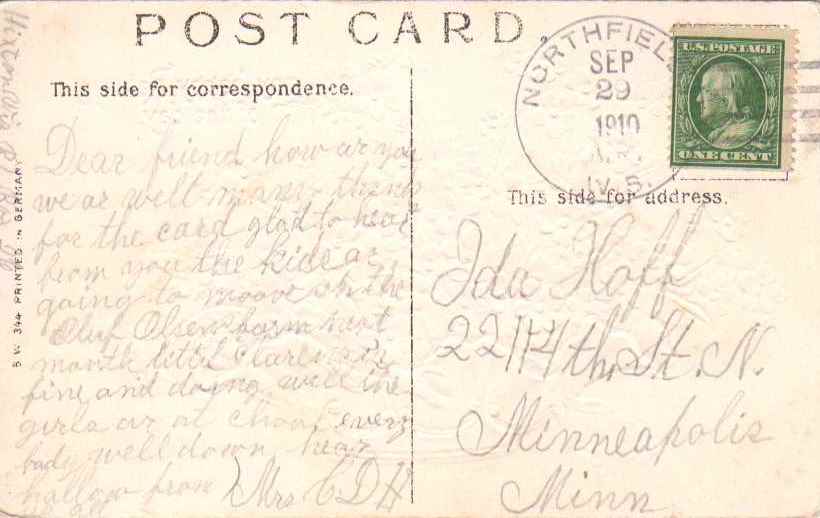 POST CARD.
This side for correspondence.
Dear friend how ar you
we ar well many thanks
for the card glad to hear
from you the kids ar
going to moove on the
Oluf Olsen farm next
month little Clarence is
fine and doing well the
girls ar at chool every
body well down hear
hallow from Mrs C D H
B.W. 344 PRINTED IN GERMANY
NORTHFIELD
SEP
29
1910
U.S. POSTAGE
ONE CENT
This side for address.
Ida Hoff
22 11 4th St. N.
Minneapolis
Minn